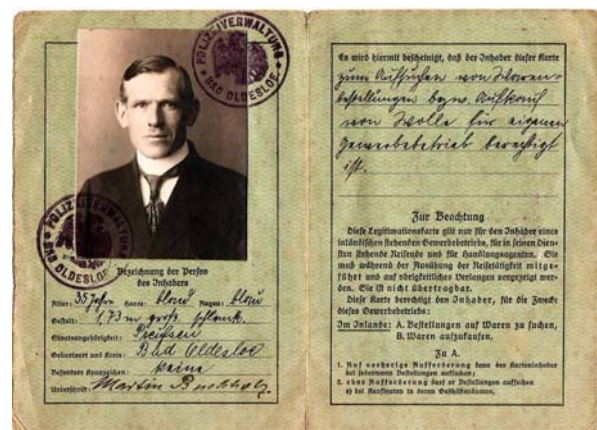 POLIZEIVERWALTUNG
* BAD OLDESLOE. *
POLIZEIVERWALTUNG
BAD OLDESLOE
Bezeichnung der Person
des Inhabers
Alter: 35 Jahre Haare: blond Augen: blau
Gestalt: 1,73 m groß, schlank.
Staatsangehörigkeit: Preußen
Geburtsort und Kreis: Bad Oldesloe
Besondere Kennzeichen: keine
Unterschrift: Martin Buchholz
Es wird hiermit bescheinigt, daß der Inhaber dieser Karte
zum Aufsuchen von Waren-
bestellungen bezw. Aufkauf
von Wolle für eigenen
Gewerbebetrieb berechtigt
ist.
Zur Beachtung
Diese Legitimationskarte gilt nur für den Inhaber eines
inländischen stehenden Gewerbebetriebs, für in seinen Dien-
sten stehende Reisende und für Handlungsagenten. Sie
muß während der Ausübung der Reisetätigkeit mitge-
führt und auf obrigkeitliches Verlangen vorgezeigt wer-
den. Sie ist nicht übertragbar.
Diese Karte berechtigt den Inhaber, für die Zwecke
dieses Gewerbebetriebs:
Im Inlande: A. Bestellungen auf Waren zu suchen,
B. Waren aufzukaufen.
Zu A.
1. Auf vorherige Aufforderung kann der Karteninhaber
bei jedermann Bestellungen aufsuchen;
2. ohne Aufforderung darf er Bestellungen aufsuchen
a) bei Kaufleuten in deren Geschäftsräumen,